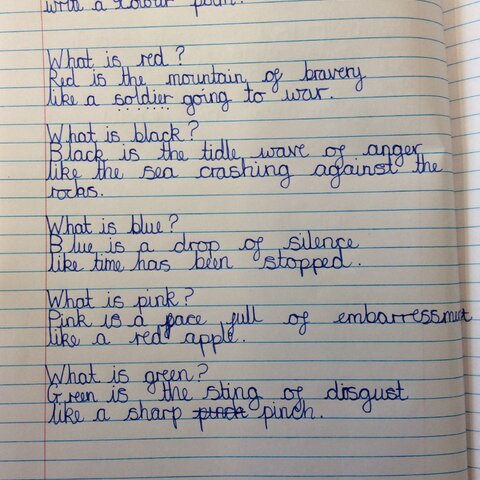 write a colour poem.
What is red?
Red is the mountain of bravery
like a soldier going to war.
What is black?
Black is the tidle wave of anger
like the sea crashing against the
rocks.
What is blue?
Blue is a drop of silence
like time has been stopped.
What is pink?
Pink is a face full of embarressment
like a red apple.
What is green?
Green is the sting of disgust
like a sharp pinch pinch.